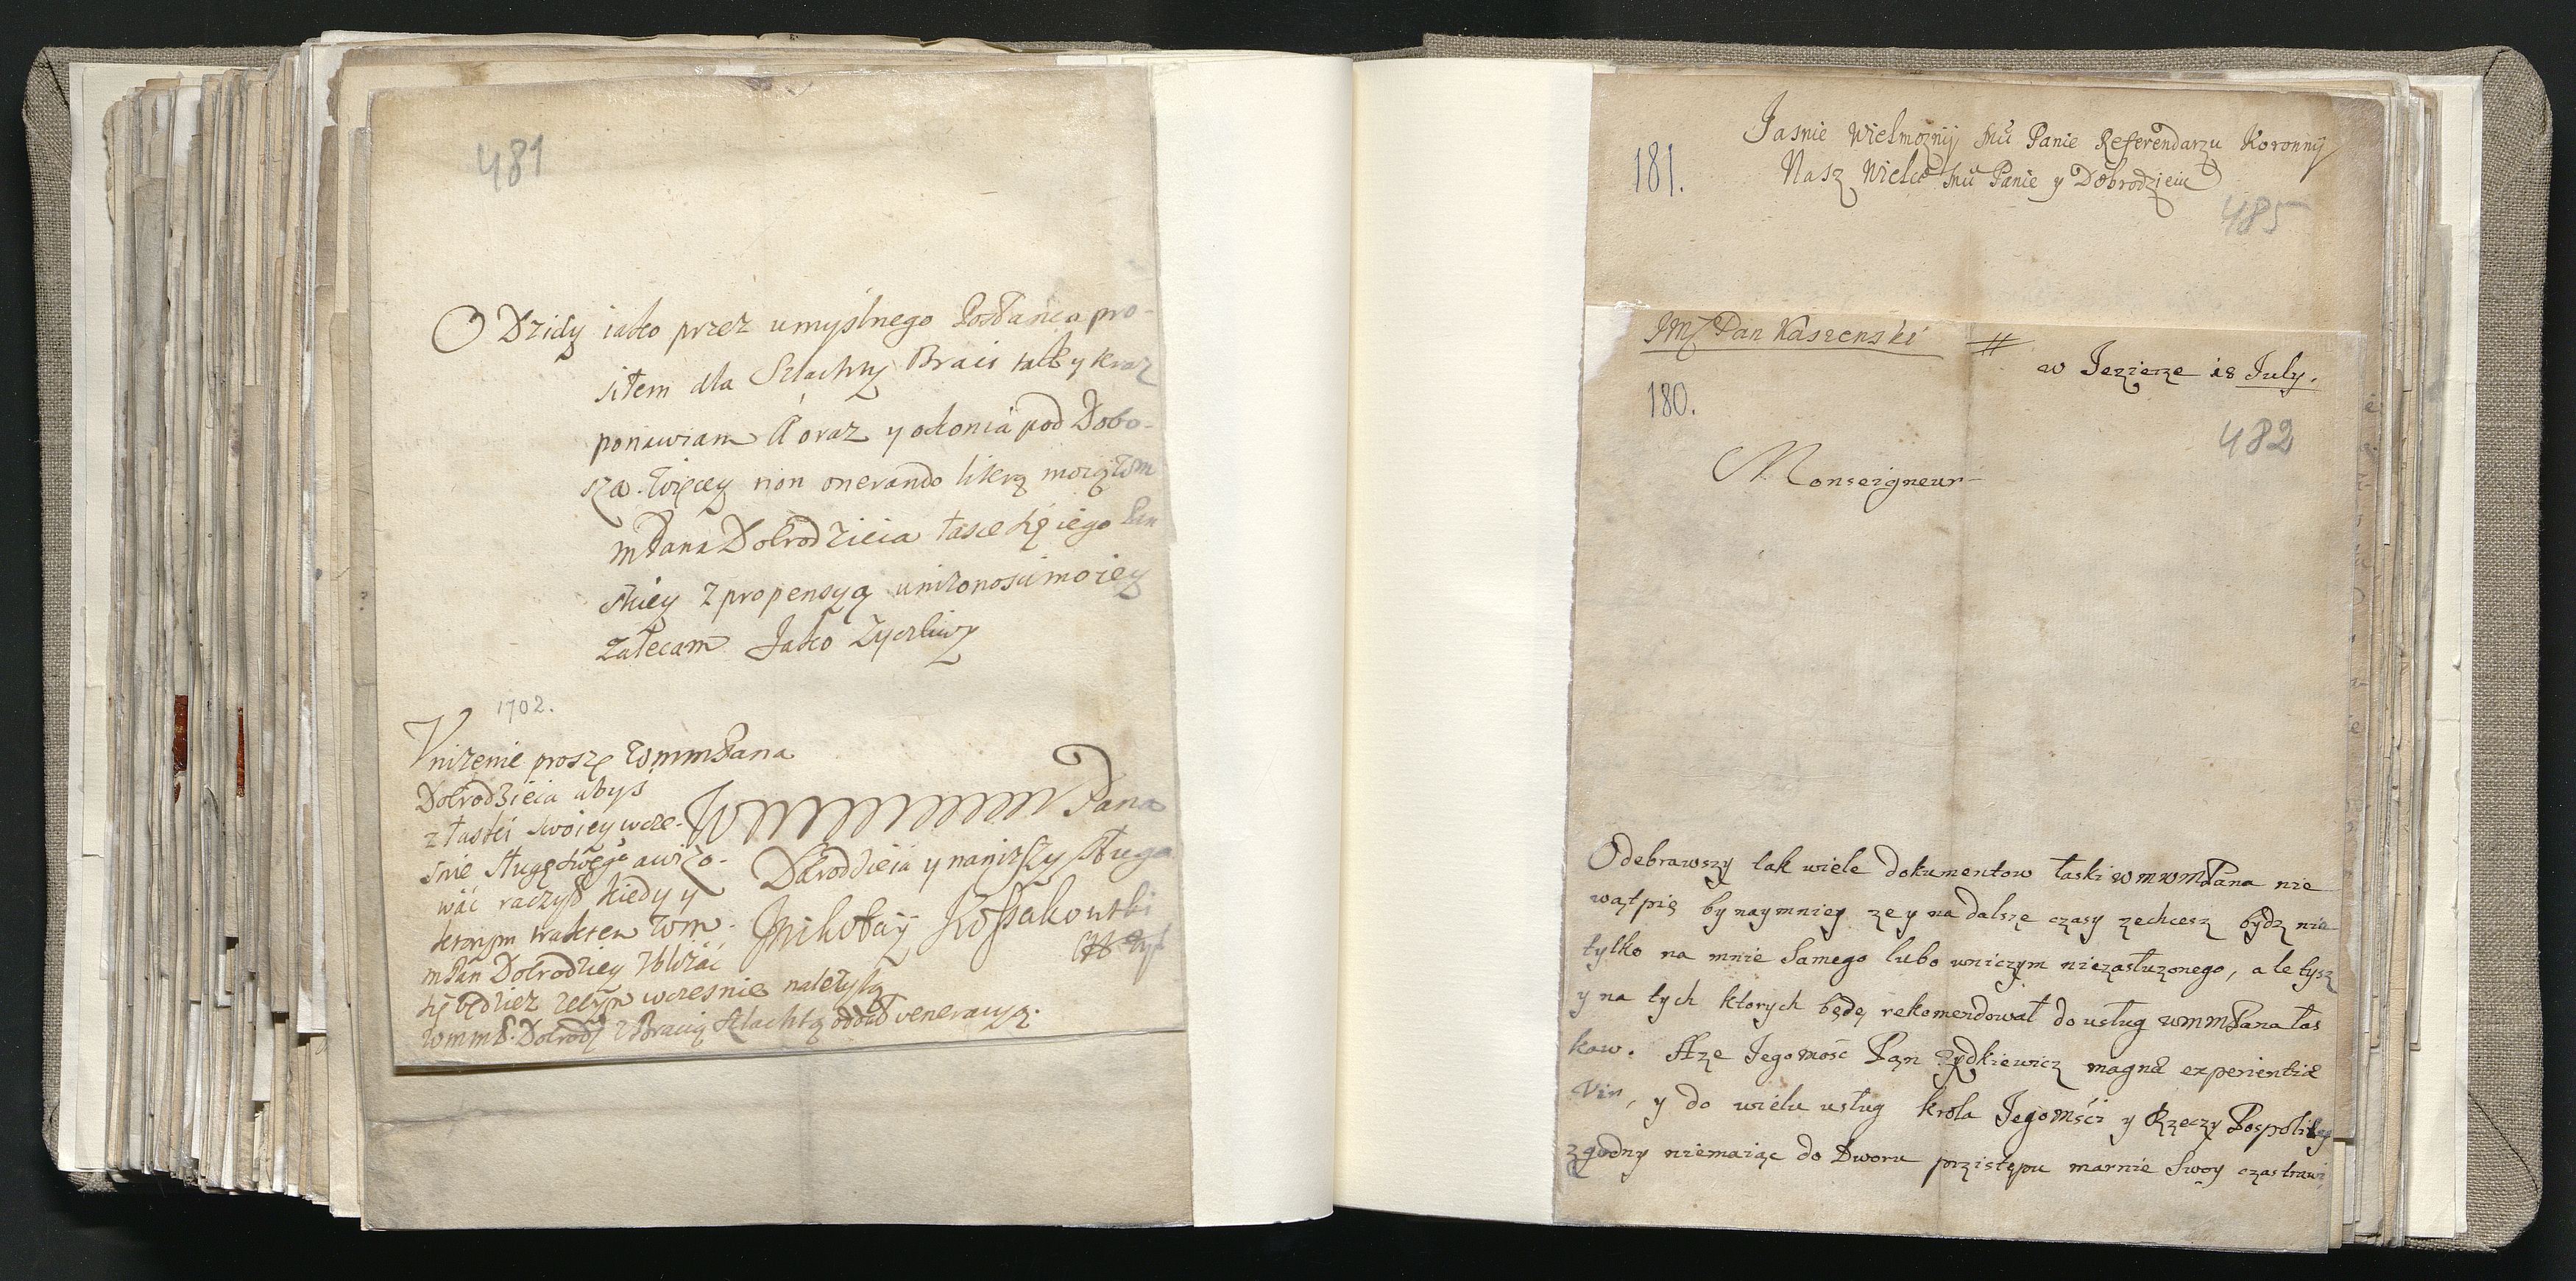 481
O Dzidy iako przez umyslnego Posłanca pro-
siłem dla Szlachty Braci tak y teraz
ponawiam A oraz y o konia pod Dobo-
sza. Więcey non onerando literą moią Wm
mPana Dobrodzieia łasce się iego Pan
skiey z propensyą unizonosci moiey
zalecam Jako Zyczliwy
1702.
Vnizenie proszę WmmPana
Dobrodzieia abys
z łaski swoiey wcze-
snie sługę swego awizo-
wać raczył kiedy y
ktorym traktem Wm-
mPan Dobrodziey zblizać
się będziesz zebym wczesnie nalezytą
WmmP. Dobrodz z Bracią Szlachtą oddał veneracyą.
W Pana
Dobrodzieia y naniższy sługa
Mikołaÿ Kossakowski
181.
Jasnie Wielmoznÿ Mu Panie Referendarzu Koronnÿ
Nasz Wielce Mu Panie y Dobrodzieiu
485
JMP Pan Kaszenski
w Jezierze 18 July.
180.
482
Monseigneur
Odebrawszy tak wiele dokumentow łaski wmwmPana nie
wątpię bynaymniey ze y na dalsze czasy zechcesz bydz nie
tylko na mnie Samego lubo wniczym niezasłuzonego, ale tysz
y na tych ktorych będę rekomendował do usług wmmPana łas
kaw. Aze Jegomość Pan Zydkiewicz magnæ experientiæ
Vir, y do wielu usług krola Jegomści y Rzeczy Pospolitey
zgodny niemaiąc do Dworu przistępu marnie Swoy czas trawi